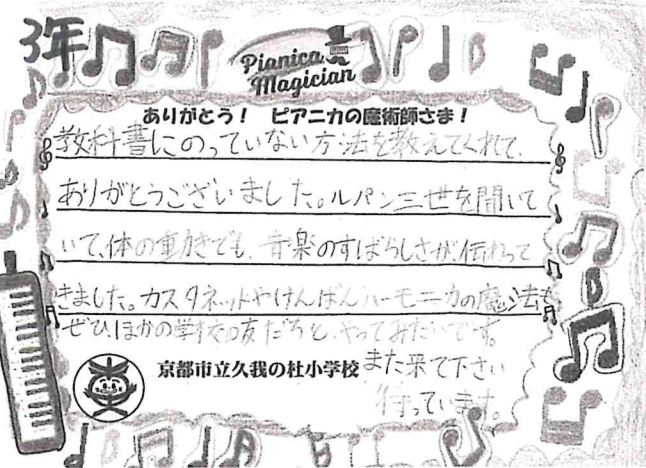 3年
Pianica
Magician
ありがとう！ ピアニカの魔術師さま！
教科書にのっていない方法を教えてくれて、
ありがとうございました。ルパン三世を聞いて
いて、体の動きでも、音楽のすばらしさが、伝わって
きました。カスタネットやけんばんハーモニカの魔法を
ぜひ、ほかの学校の友だちと、やってみたいです。
京都市立久我の杜小学校
また来て下さい
待っています。